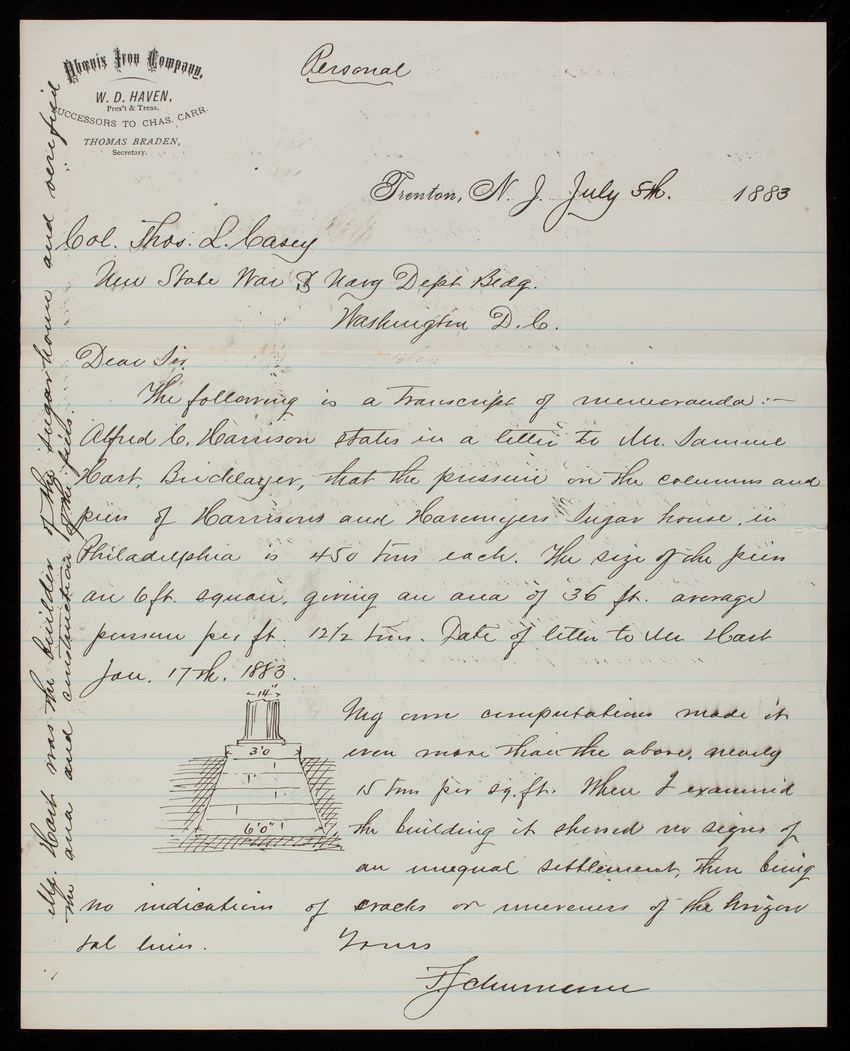 Phœnix Iron Company,
W. D. HAVEN,
Pres't & Treas.
SUCCESSORS TO CHAS. CARR.
THOMAS BRADEN,
Secretary.
Personal
Trenton, N. J. July 5th. 1883
Col. Thos. L. Casey
New State War & Navy Dept Bldg.
Washington D. C.
Dear Sir
The following is a transcript of memoranda :-
Alfred C. Harrison states in a letter to Mr. Samuel
Hart, Bricklayer, that the pressure on the columns and
piers of Harrisons and Havemeyers Sugar house, in
Philadelphia is 450 tons each. The size of the piers
are 6 ft. square, giving an area of 36 ft. average
pressure per ft. 12 1/2 tons. Date of letter to Mr Hart
Jan. 17th. 1883.
14"
3'0
1'
6'0"
My own computations made it
even more than the above, nearly
15 tons per sq. ft. When I examined
the building it showed no signs of
an unequal settlement, there being
no indications of cracks or uneveness of the horizon
tal lines.
Yours
F Schumann
Mr. Hart was the builder of the sugar house and verified
the area and construction of the piers.